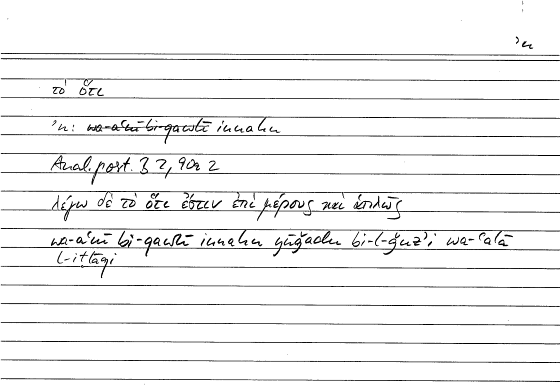 ʾn
τὸ ὅτι
ʾn: wa-aʿnī bi-qawlī innahu
Anal. post. B 2, 90a 2
λέγω δὲ τὸ ὅτι ἔστιν ἐπὶ μέρους καὶ ἁπλῶς
wa-aʿnī bi-qawlī innahu yūǧadu bi-l-ǧuzʾi wa-ʿalā
l-iṭlāqi